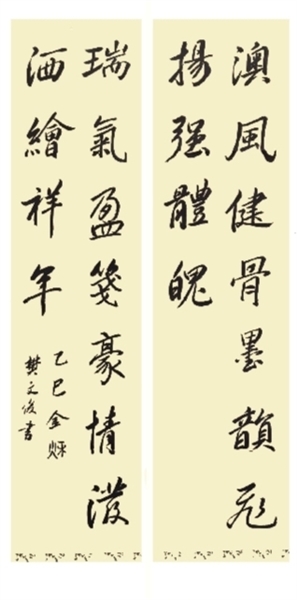 澳風健骨墨韻飛
揚强體魄
瑞氣盈箋豪情潑
洒繪祥年
乙巳金秌
樊文俊書